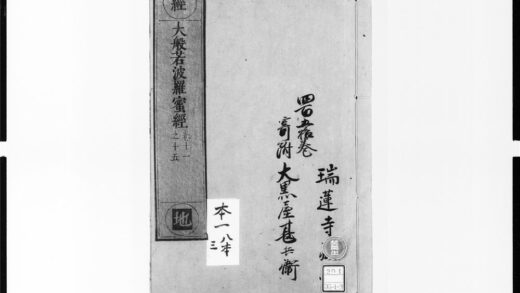 經
大般若波羅蜜經
卷十一
之十五
地
瑞蓮寺
四百五拾卷
寄附 大黒屋甚兵衛
本一八本
三
201